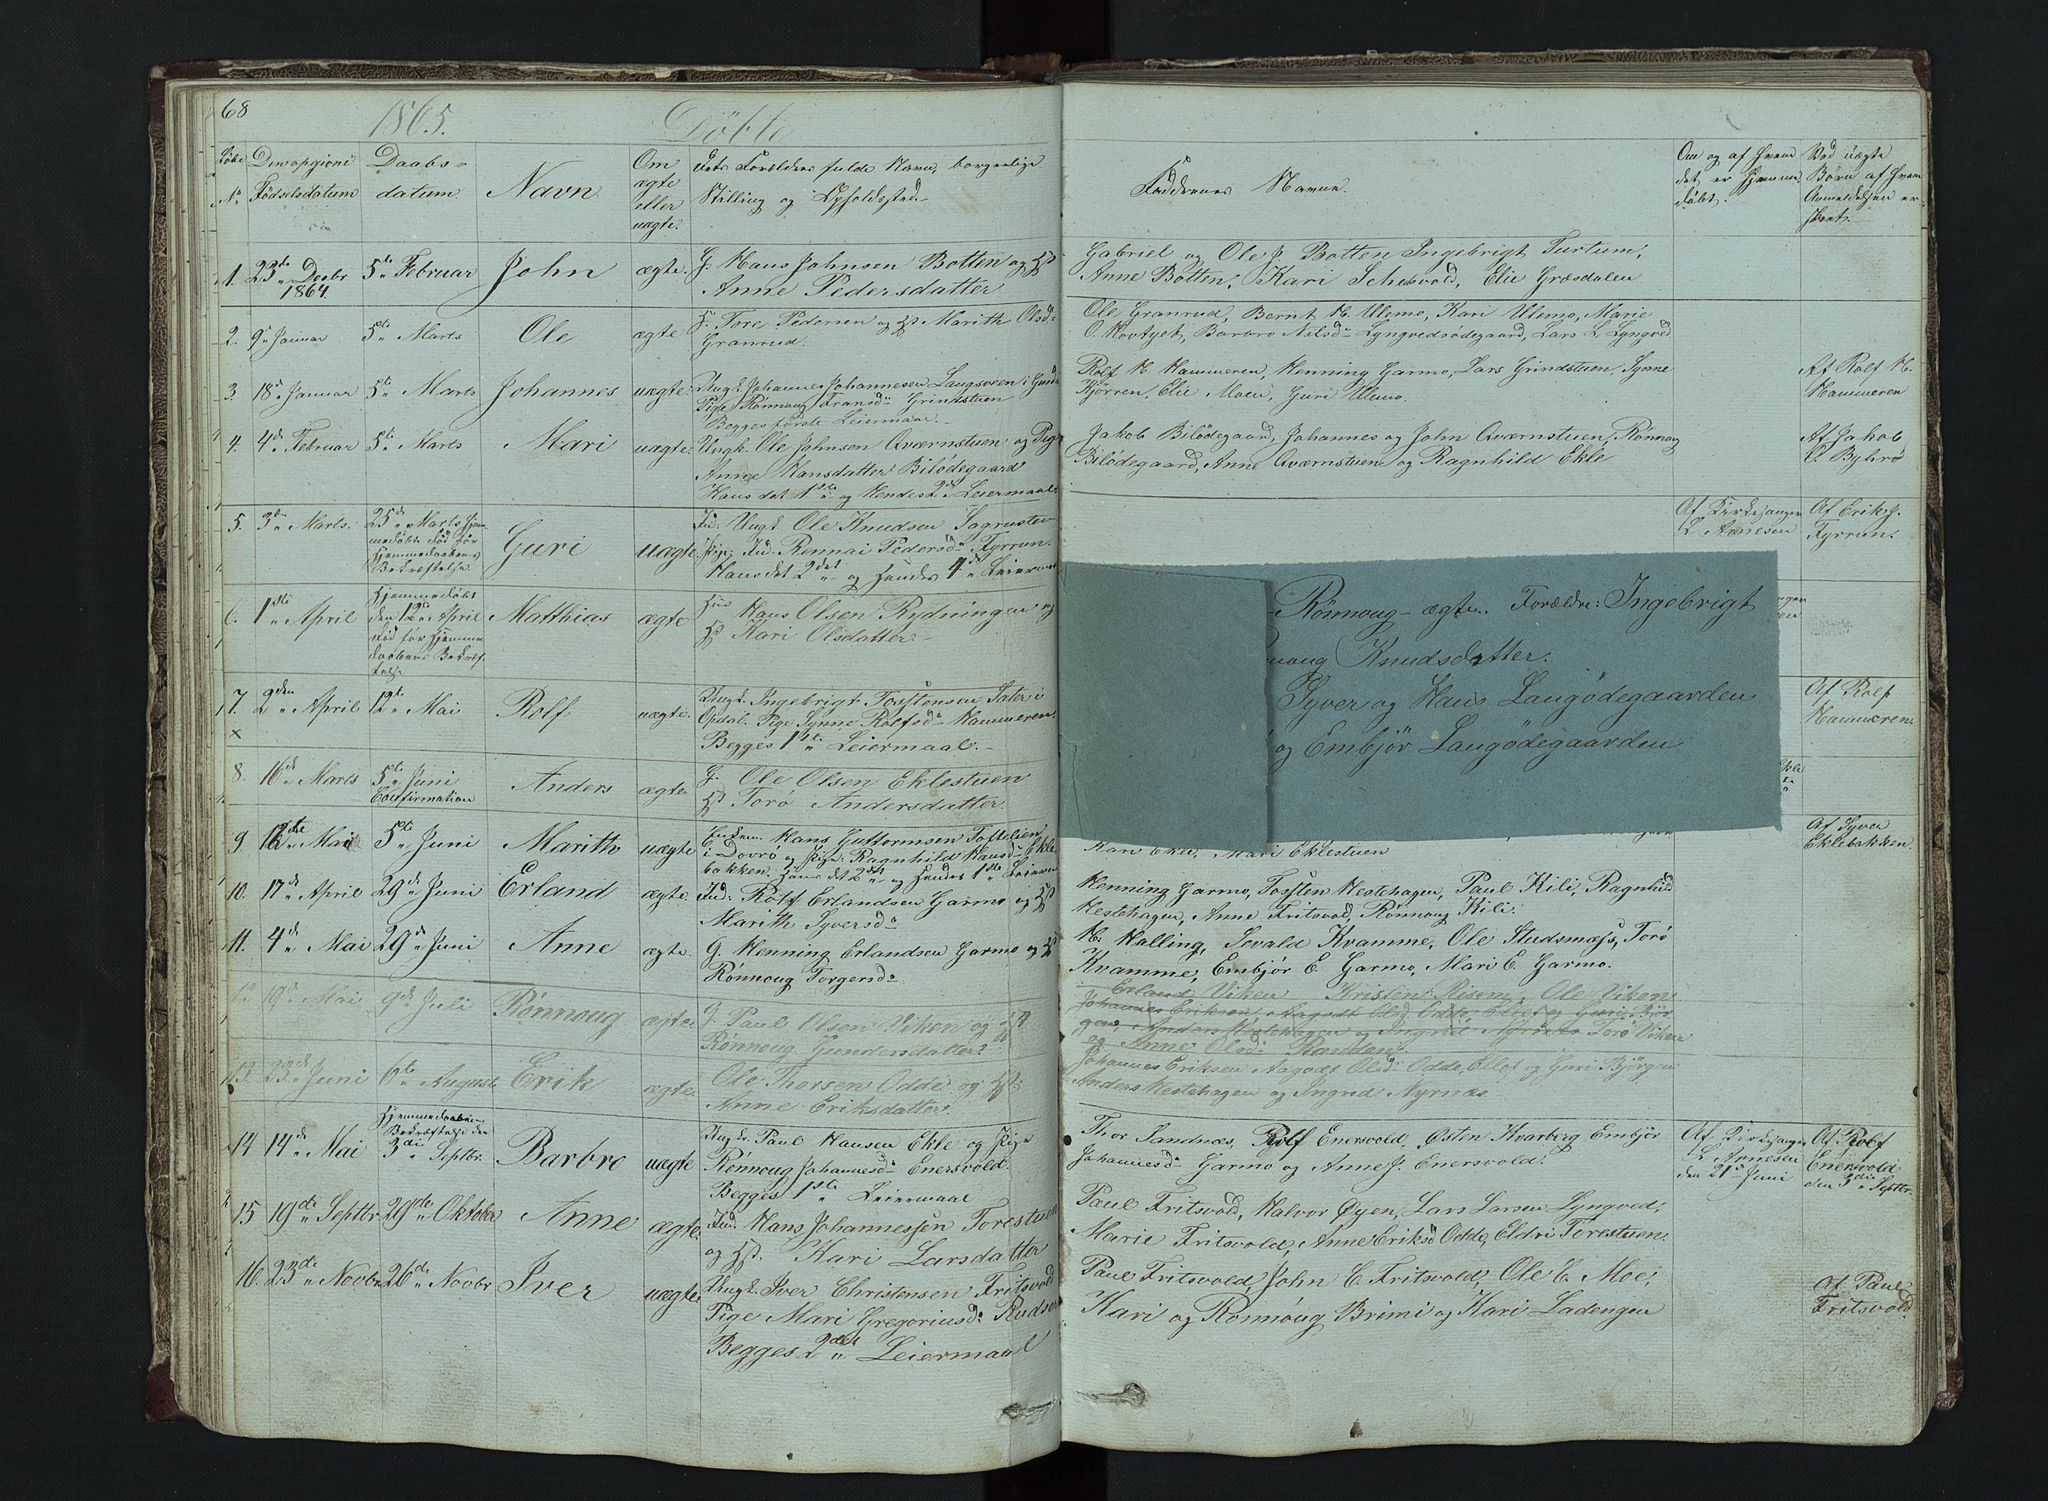 68
1865.
Döbte
Løbe
No
Den opgivne
Fødselsdatum
Daabs-
datum
Navn
Om
ægte
eller
uægte.
Dets Forældres fulde Navn, borgerlige
Stilling og Opholdssted
1.
23de Decbr
1864.
5te Februar
John
ægte.
G. Hans Johnsen Botten og H.
Anne Pedersdatter
2.
9de Januar
5te Marts
Ole
ægte
Tore Pedersen og Marith Olsd.
Granrud.
3
18de Januar
5te Marts
Johannes
uægte.
Ungk. Johannes Johannesen Langsveen i
Pige Rønnoug Fransd. Grindstuen
Begges første Leiermaal.
4.
4de Februar
5te Marts
Mari
uægte.
Ungk. Ole Johnsen Qværnstuen og Pige
Anne Hansdatter Bilødegaard
Hans det 1ste og Hendes 2det Leiermaal.
5.
3die Marts.
25de Marts hjem-
medøbt død før
Hjemmedaabens
Bekræftelse.
Guri
uægte
Ind: Ungk. Ole Knudsen Sagrusten
Pige Ind. Rennai Pedersd. Fyrrun.
Hans det 2det og Hendes 4de Leiermaal
6.
1ste April
Hjemmedøbt
den 12te April
død før Hjemme
daabens Bekræf-
telse
Matthias
ægte
Hans Olsen Rydningen og
Kari Olsdatter
7.
×
2den April
12te Mai
Rolf
uægte.
Ungk. Ingebrigt Tosstensen Sater i
Opdal. Pige Synne Rolfsd. Hammeren.
Begges 1ste Leiermaal.
8.
16de Marts
5te Juni
Confirmation
Anders
ægte.
G. Ole Olsen Eklestuen
Torø Andersdatter.
9.
12te Mai
5te Juni
Marith
uægte
Enkem. Hans Guttormsen Toftelien
i Dovre og Pige. Ragnhild Hansd. Ekle
bakken. Hans det 2det og Hendes 1ste Leierm
10.
17de April
29de Juni
Erland
ægte.
Ind. Rolf Erlandsen Garmo og
Marith Syversd.
11.
4de Mai
29de Juni
Anne
ægte.
G. Henning Erlandsen Garmo og
Rønnoug Torgersd.
12
19de Mai
9de Juli
Rønnoug
ægte.
G. Paul Olsen Viken og
Rønnoug Gundersdatter.
13.
23de Juni
6te August
Erik
ægte.
Ole Thorsen Odde og
Anne Eriksdatter
14
14de Mai
Hjemmedaaben
Bekræftelse den
3die Septbr.
Barbro
uægte
Ungk. Paul Hansen Ekle og Pige
Rønnoug Johannesd. Enersvold.
Begges 1ste Leiermaal
15
19de Septbr
29de Oktober
Anne
ægte.
Ind. Hans Johannessen Torestuen
og Kari Larsdatter
16.
23de Novbr
26de Novbr
Iver
uægte.
Ungk. Iver Christensen Fritsvold
Pige Mari Gregoriusd. Rudsen
Begges 2det Leiermaal
Faddernes Navne.
Om og af Hvem
det er hjemme-
døbt.
Ved uægte
Børn af Hvem
Anmeldelsen er
skeet.
Gabriel og Ole J. Botten Ingebrigt Turtum,
Anne Botten, Kari Schesvold, Elie Græsdalen
Ole Granrud, Bernt H. Ulemo, Kari Ulemo, Marie
O. Hovtyet, Barbro Nilsd. Lyngvedsødegaard, Lars L. Lyngved
Rolf H. Hammeren, Henning Garmo, Lars Grindstuen, Synne
Kjørren, Elie Moen, Guri Ulemo.
Af Rolf H.
Hammeren
Jakob Bilødegaard, Johannes og John Qværnstuen, Rønnoug
Bilødegaard, Anne Qværnstuen og Ragnhild Ekle
Af Jakob
O. Byhrø
Af Kirkesanger
L Arnesen
Af Erik J.
Fyrrun.
Rønnoug - ægte. Forældre: Ingebrigt
noug Knudsdatter.
Syver og Hans Laugødegaarden
og Embjör Laugødegaarden
Af Rolf
Hammeren
Kari Ekle, Mari Eklestuen
Af Syver
Eklebakken.
Henning Garmo, Tosten Hestehagen, Paul Kili, Ragnhild
Hestehagen, Anne Fritsvold, Rønnoug Kili.
H. Halling, Sevald Kramme, Ole Studsmass, Torø
Kramme, Embjør E. Garmo, Mari E. Garmo.
Erland Viken Kristen Risen, Ole Viken
Johannes Eriksen Aagodt Olsd. Odde, Ellef og Guri Bjør
gen, Anders Hestehagen og Ingrid Nyrnæs Torø Viken
og Anne Olsd.
Johannes Eriksen Aagodt Olsd. Odde, Ellef og Guri Bjørgen
Anders Hestehagen og Ingrid Nyrnæs.
Thor Sandnæs, Rolf Enersvold, Østen Kvarberg Embjör
Johannesd. Garmo og Anne J. Enersvold.
Af Kirkesanger
L Arnesen
den 21de Juni
Af Rolf
Enersvold
den 3die Septbr.
Paul Fritsvold, Halvor Øyen, Lars Larsen Lyngved,
Marie Fritsvold, Anne Eriksd Odde, Eldri Torestuen.
Paul Fritsvold, John C. Fritsvold, Ole C. Moe,
Kari og Rønnoug Brimi og Kari Ladengen
Af Paul
Fritsvold